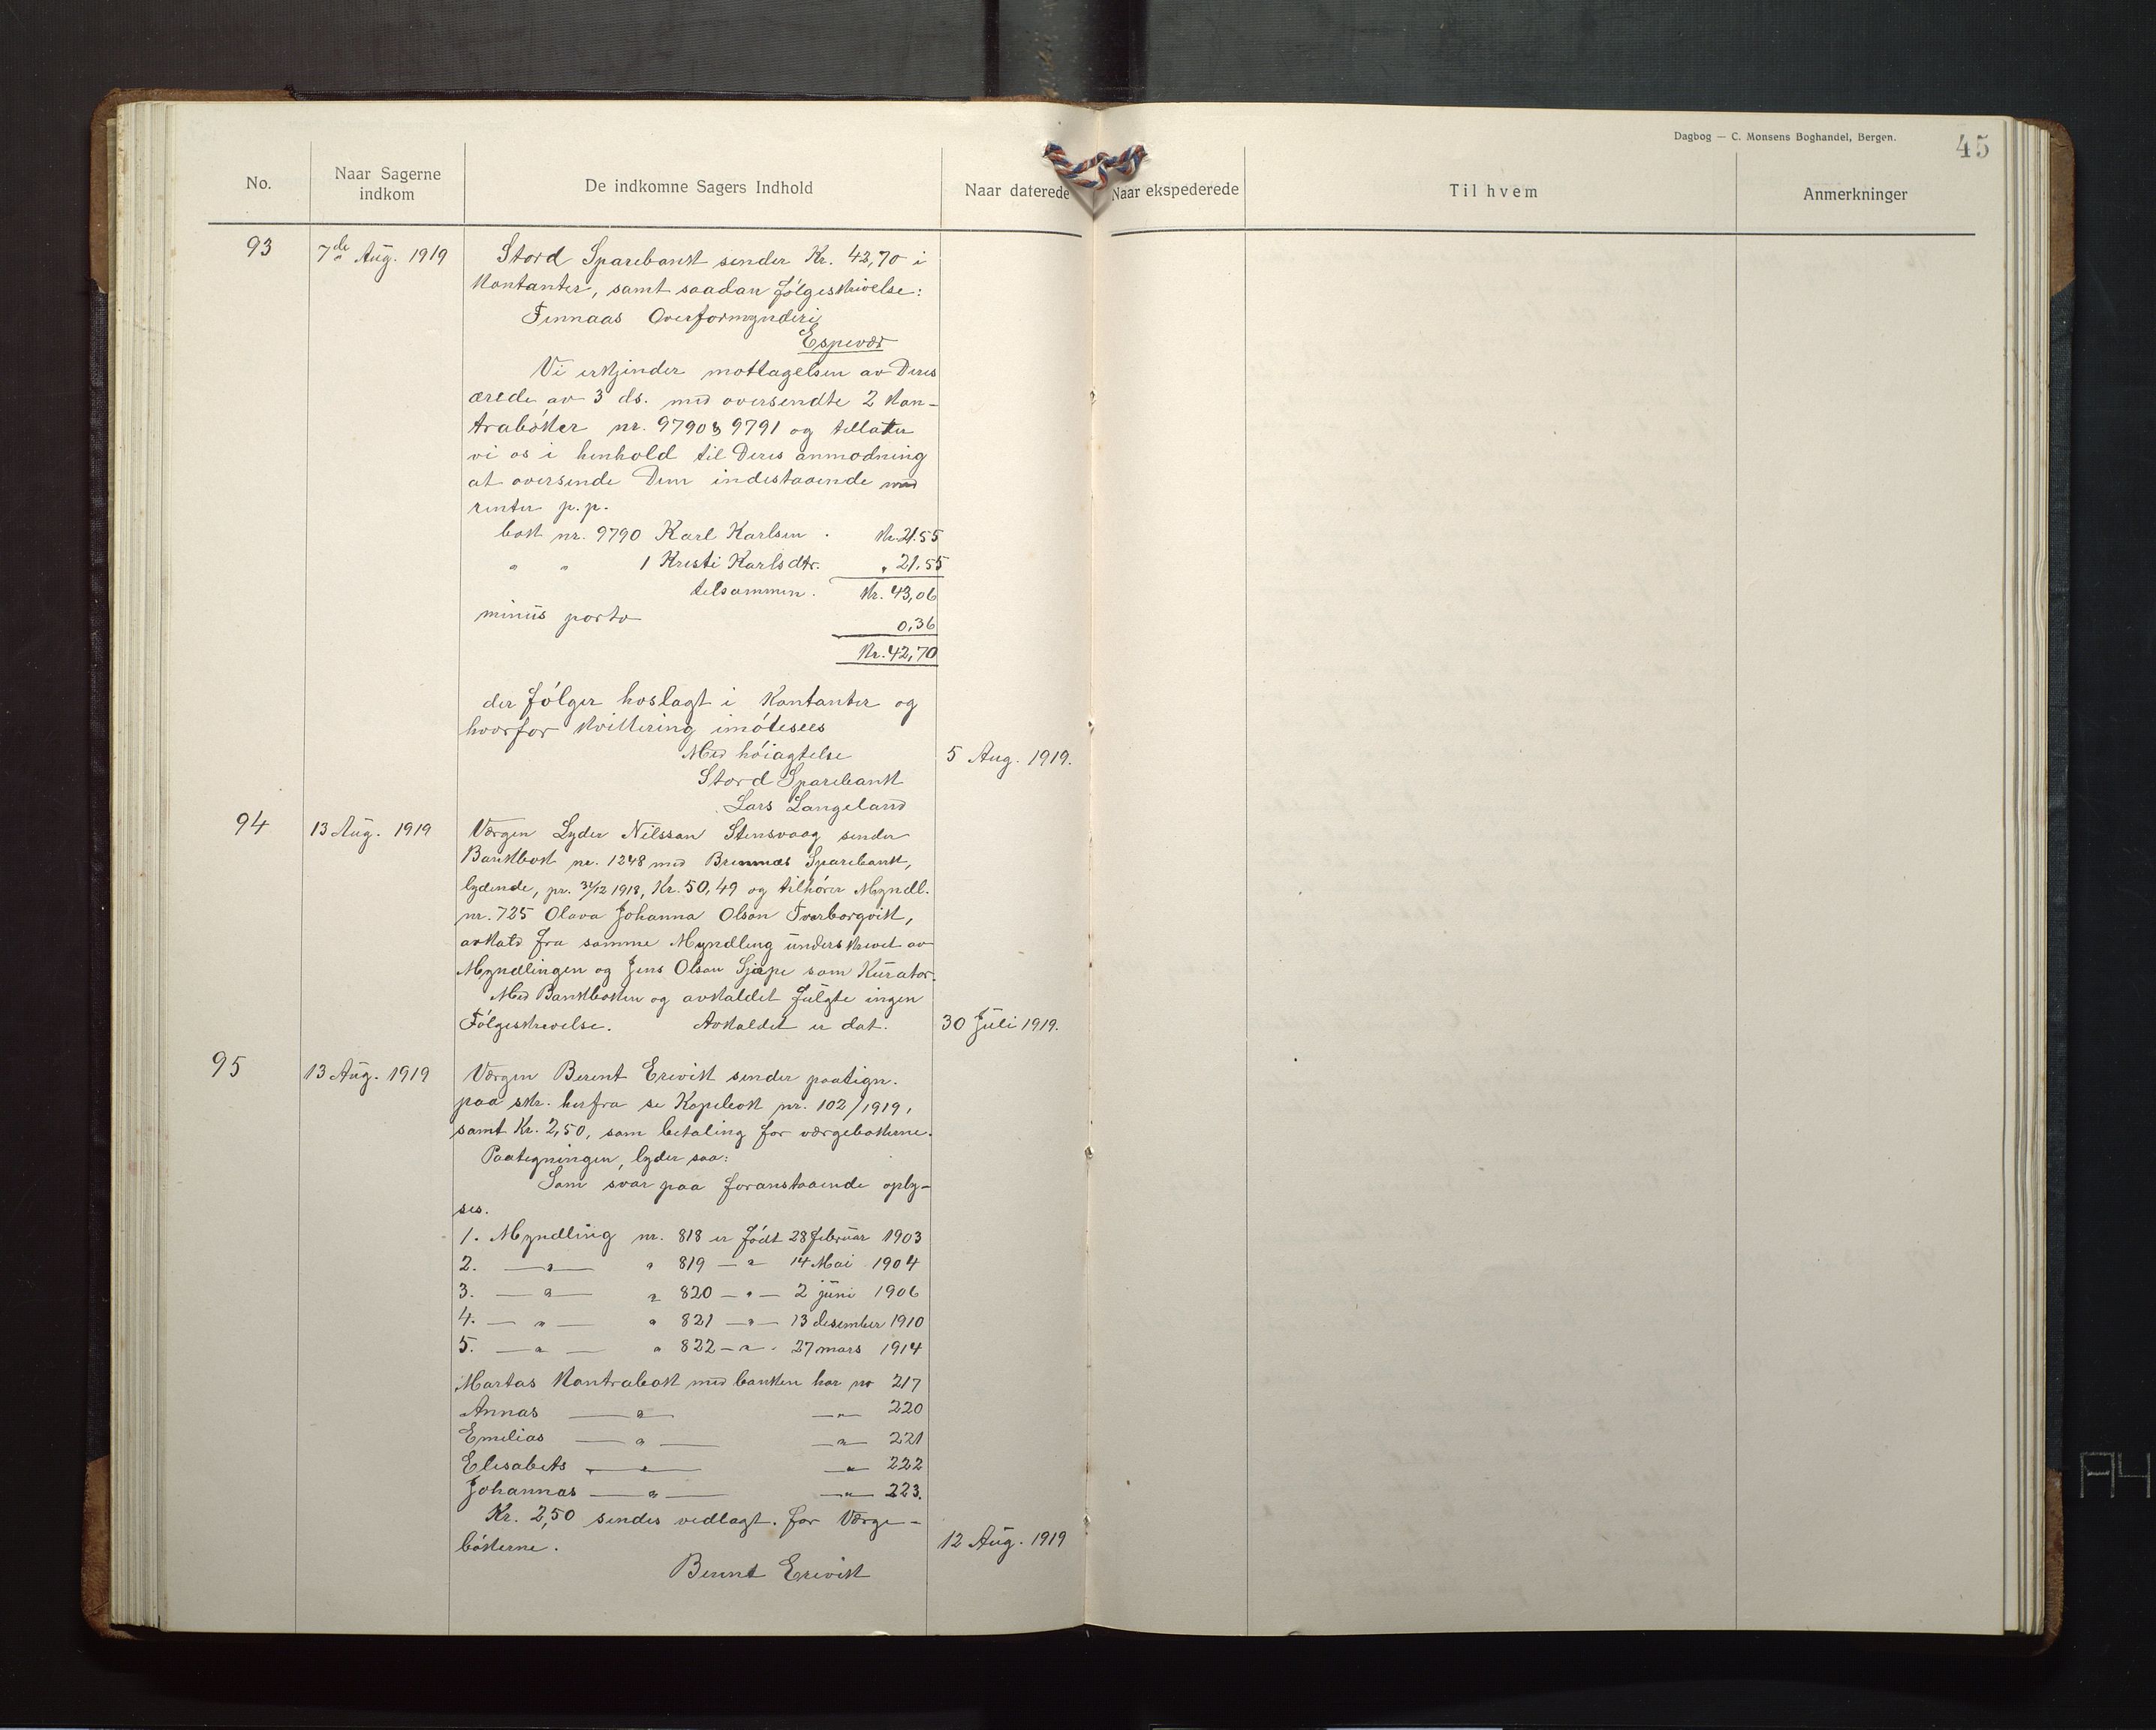 Dagbog — C. Monsens Boghandel, Bergen.
45
No.
Naar Sagerne indkom
De indkomne Sagers Indhold
Naar daterede
Naar ekspederede
Til hvem
Anmerkninger
93
7de Aug. 1919
Stord Sparebank sender Kr. 42,70 i
kontanter, samt saadan følgeskrivelse:
Finnaas Overformynderi
Espevær
Vi erkjender mottagelsen av Deres
ærede av 3 ds. med oversendte 2 kon-
trabøker nr. 9790 & 9791 og tillater
vi os i henhold til Deres anmodning
at oversende Dem indestaaende med
renter p.p.
bok nr. 9790 Karl Karlsen . Kr. 21.55
" " 1 Kristi Karlsdtr. " 21.55
tilsammen . Kr. 43,06
minus porto 0,36
Kr. 42,70
der følger hoslagt i kontanter og
hvorfor kvittering imøtesees
Med høiagtelse
5 Aug. 1919.
Stord Sparebank
Lars Langeland
94
13 Aug. 1919
Værgen Lyder Nilssøn Stensvaag sender
Bankbok nr. 1248 med Bremnes Sparebank,
lydende, pr. 31/12 1918, Kr. 50,49 og tilhører Myndl.
nr. 725 Olava Johanna Olson Tverborgvik,
avkald fra samme Myndling underskrevet av
Myndlingen og Jens Olson Sjøpe som Kurator.
Med Bankboken og avkaldet fulgte ingen
Følgeskrivelse. Avkaldet er dat.
30 Juli 1919.
95
13 Aug. 1919
Værgen Berent Erevik sender paategn.
paa skr. herfra se Kopibok nr. 102/1919,
samt Kr. 2,50, som betaling for værgebokerne.
Paategningen, lyder saa:
Som svar paa foranstaaende oply-
ses.
1. Myndling nr. 818 er født 28 februar 1903
2. — " — " 819 — " 14 Mai 1904
3. — " — " 820 — " — 2 juni 1906
4. — " — " 821 — " — 13 desember 1910
5. — " — " 822 — " - 27 mars 1914
Martas kontrabok med banken har nr 217
Annas — " — — " — 220
Emilias — " — — " — 221
Elisabets — " — — " — 222
Johannas — " — — " — 223.
Kr. 2,50 sendes vedlagt. for Værge-
bøkerne.
12 Aug. 1919
Bernt Erevik